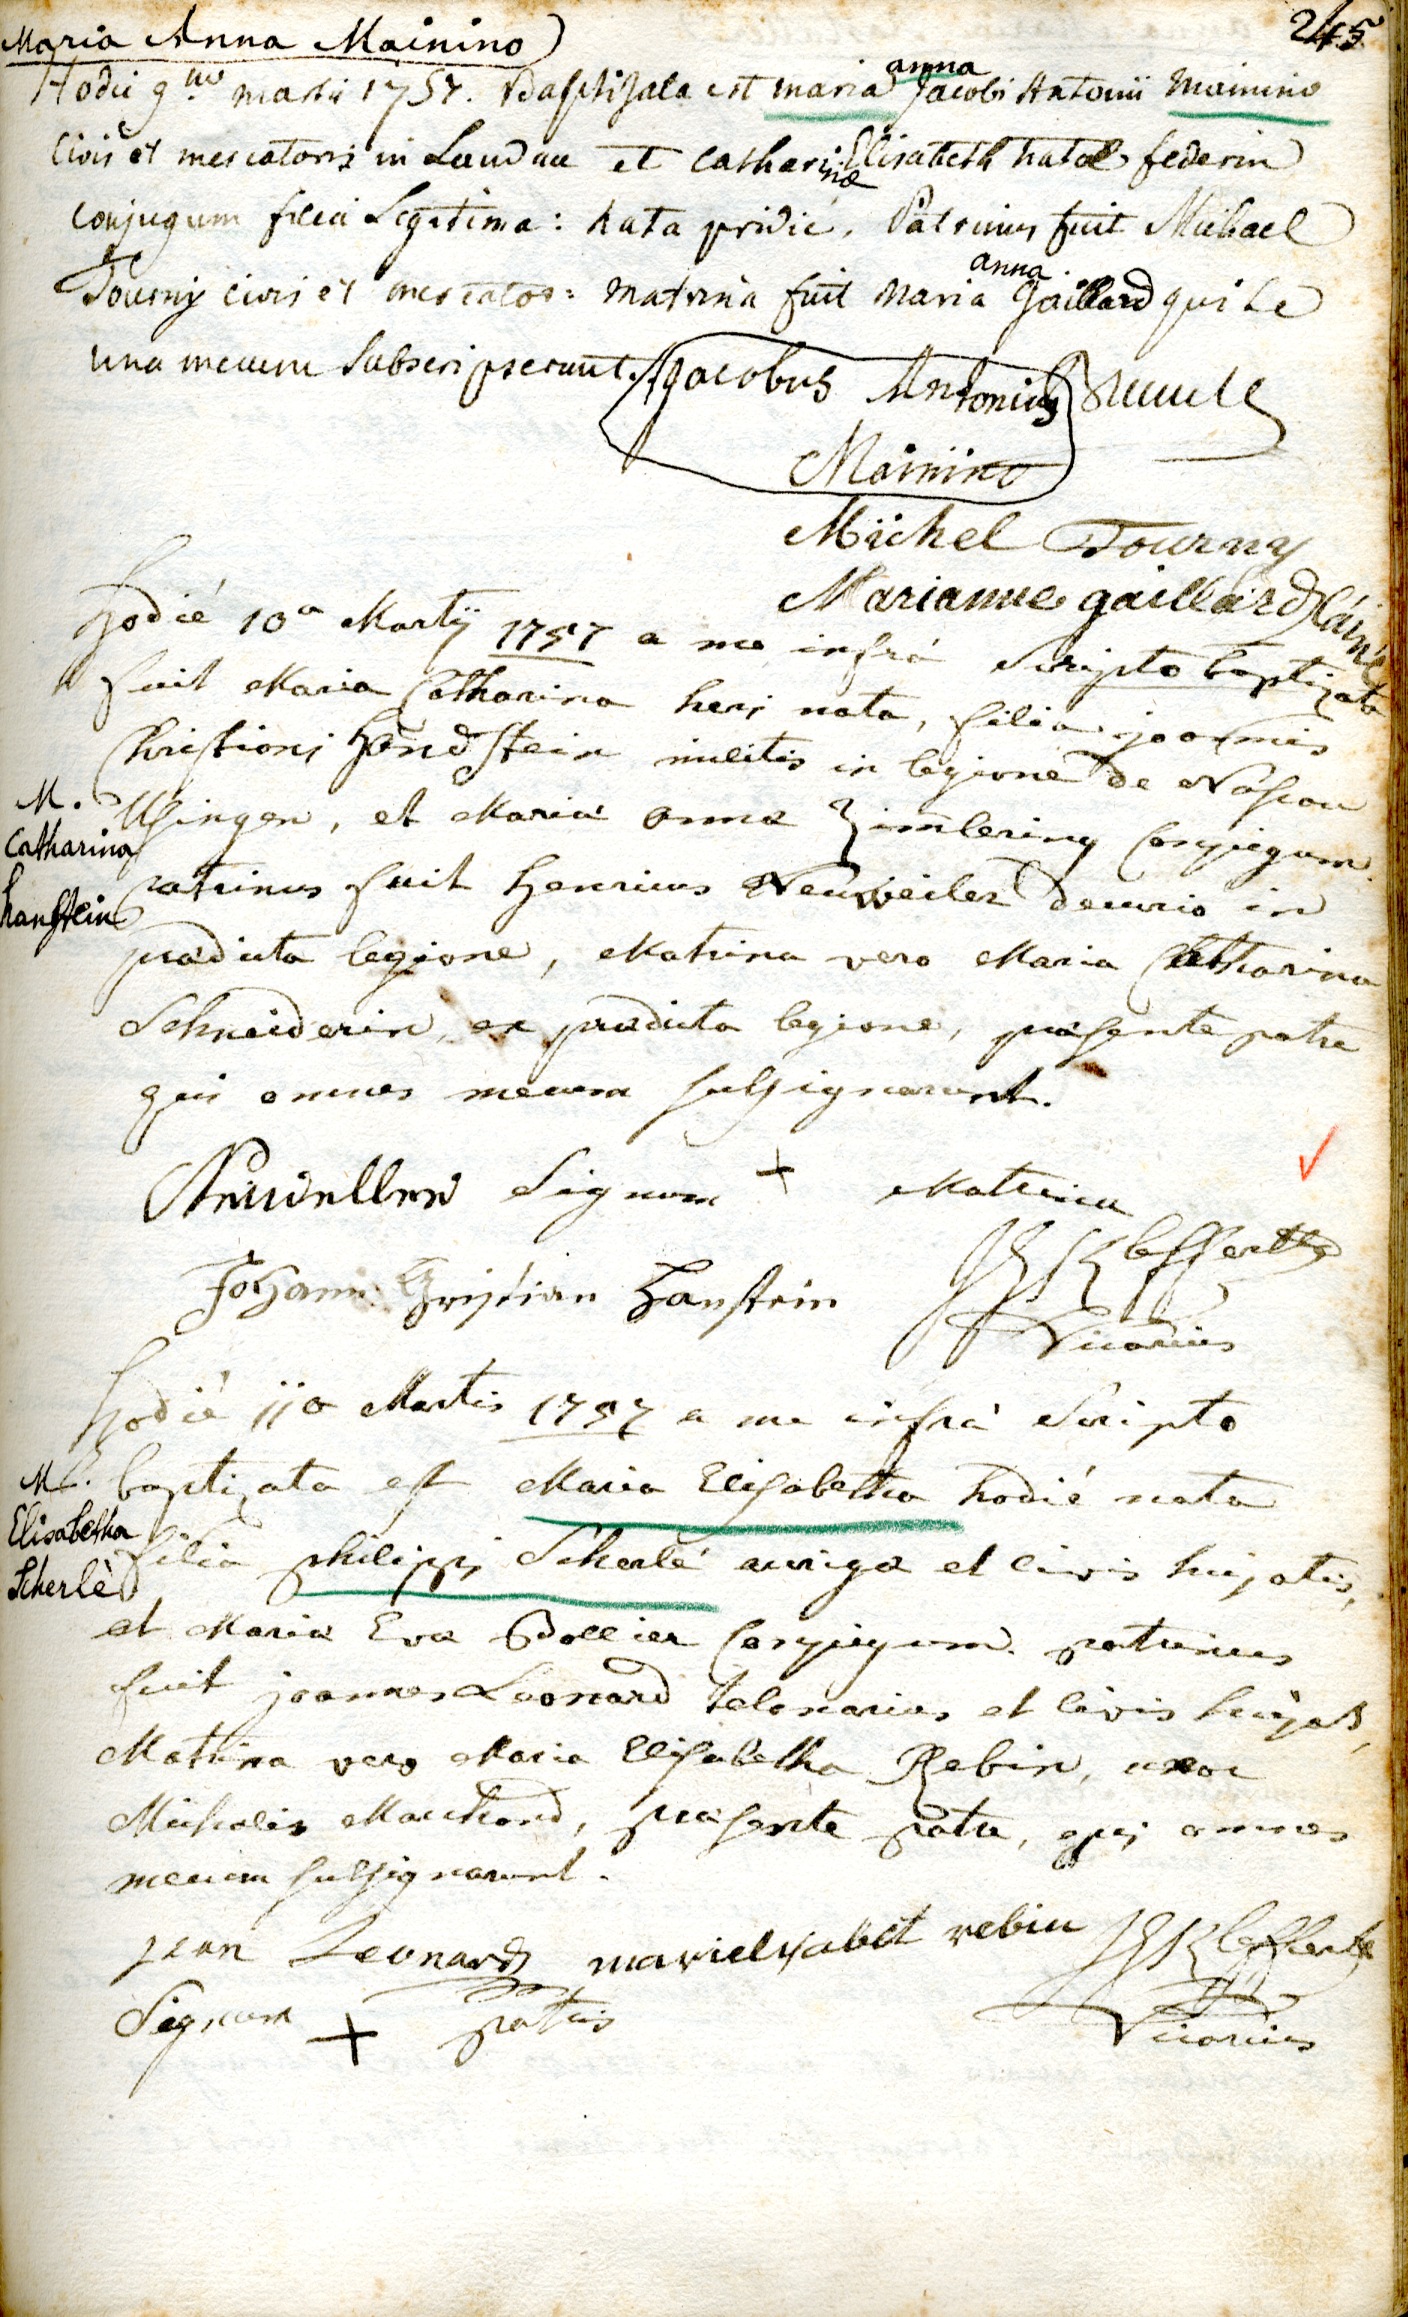 245
Maria Anna Mainino
Hodie 9na martii 1757. Baptisata est maria anna Jacobi Antonii Mainino
Civis et mercatoris in Landau et Catharinæ Elisabetha natæ federin
Conjugum filia Legitima: nata pridie. Patrinus fuit Michael
Tourny civis et mercator: matrina fuit Maria anna Gaillard qui Le
una mecum Subscripserunt. Jacobus Antonius
Mainino
Michel Tourny
Marianne gaillard l'ainé
Hodié 10a Martij 1757 a me infrá Scripto baptizata
fuit Maria Catharina heri nata, filia joannis
Christiani Handstein militis in legione de Nassau
M.
Catharina
hanstein
Usingen, et Mariæ Annæ Zimlering Conjugum.
patrinus fuit Henricus Neuweiler decurio in
prædicta legione, Matrina vero Maria Catharina
Schneiderin, ex prædicta legione, præsente patre
qui omnes mecum subsignarunt.
Neuweller Signum + Matrina
Johann Christian Hanstein
Vicarius
Hodié 11a Martis 1757 a me infrà Scripto
M.
Elisabetha
Scherlè
baptizata est Maria Elisabetha hodié nata
filia philippi Scherlé aurigæ et civis hujatis,
et Mariæ Evæ Conjugum. patrinus
fuit joannes Leonard telonarius et civis hujas,
Matrina vero Maria Elisabetha Rebin, uxor
Michaelis Marchand, præsente patre, qui omnes
mecum subsignarunt.
jean Leonard marielisabet rebin
Signum + patris
Vicarius